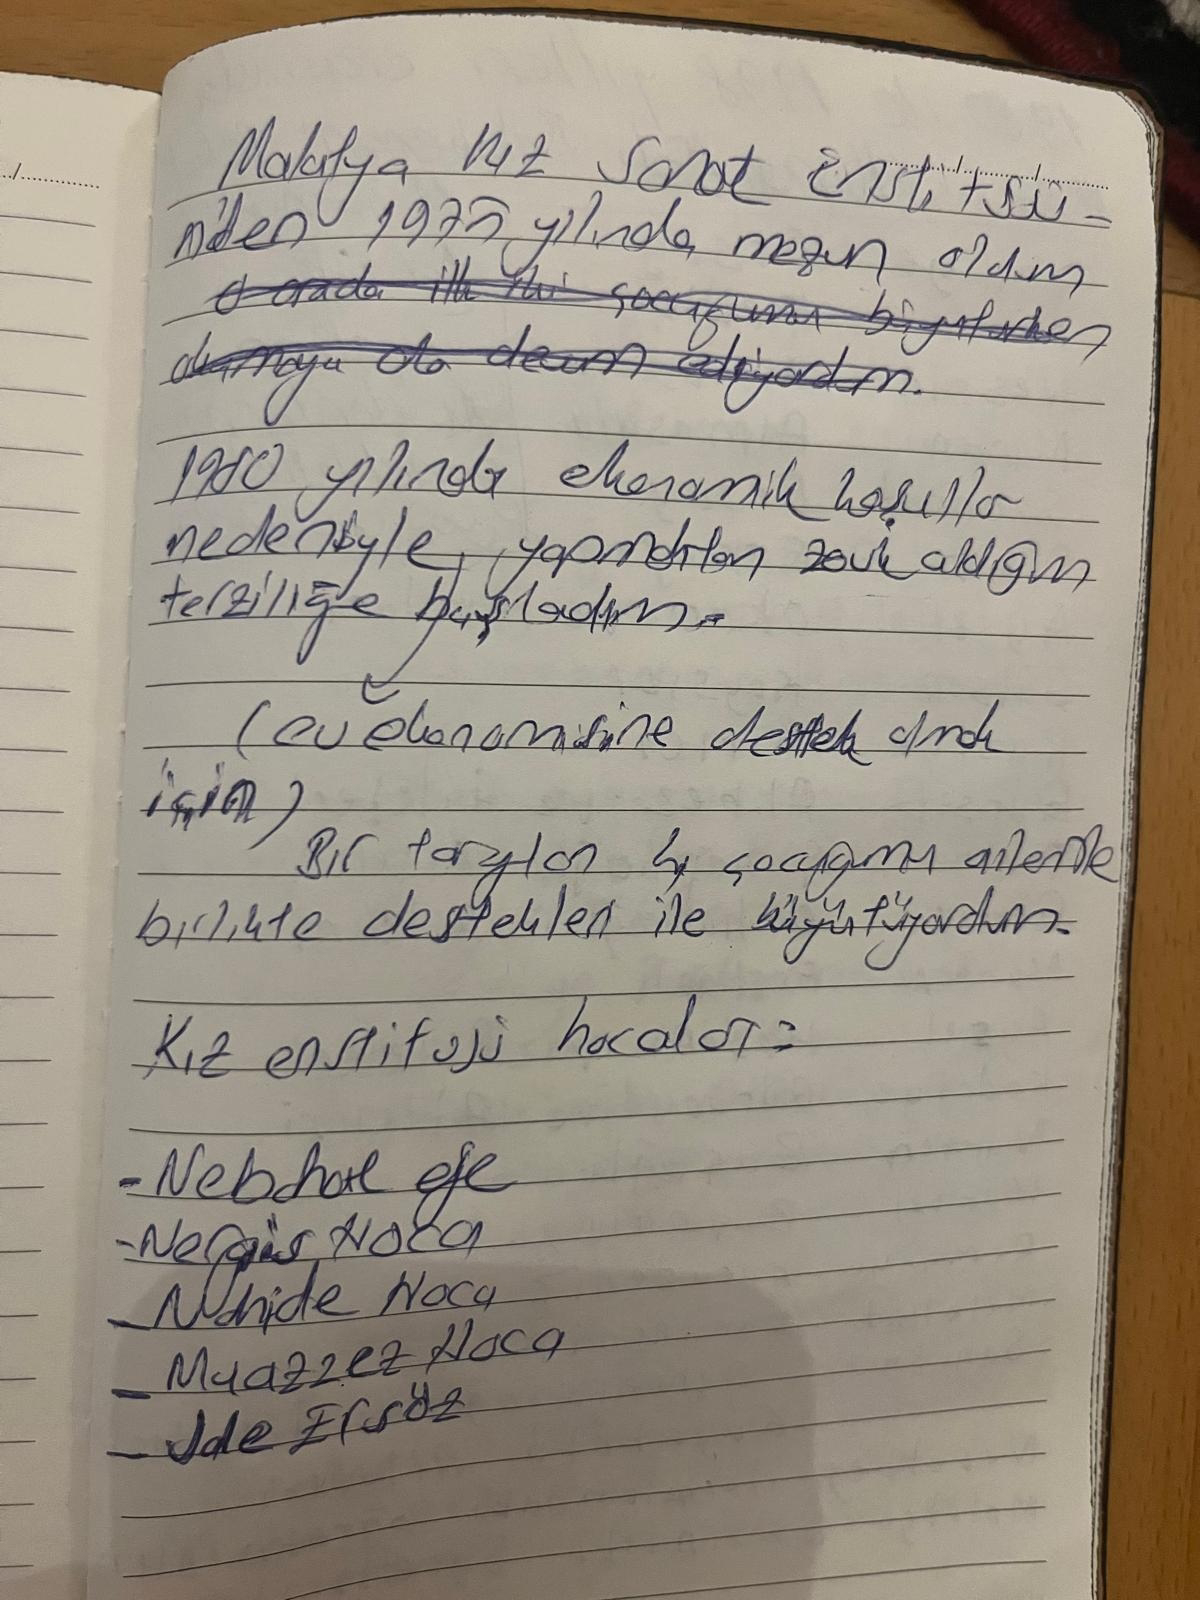 Malatya Kız Sanat Enstitüsü-
n'den 1975 yılında mezun oldum
O arada ilk iki çocuğumu büyütürken
okumaya da devam ediyordum.
1980 yılında ekonomik koşullar
nedeniyle, yapmaktan zevk aldığım
terziliğe başladım.
(ev ekonomisine destek olmak
için)
Bir taraftan çocuğumu ailemle
birlikte destekleri ile büyütüyordum.
Kız enstitüsü hocaları:
- Nebahat efe
- Nergis Hoca
- Nahide Hoca
- Muazzez Hoca
- Jale Ersöz